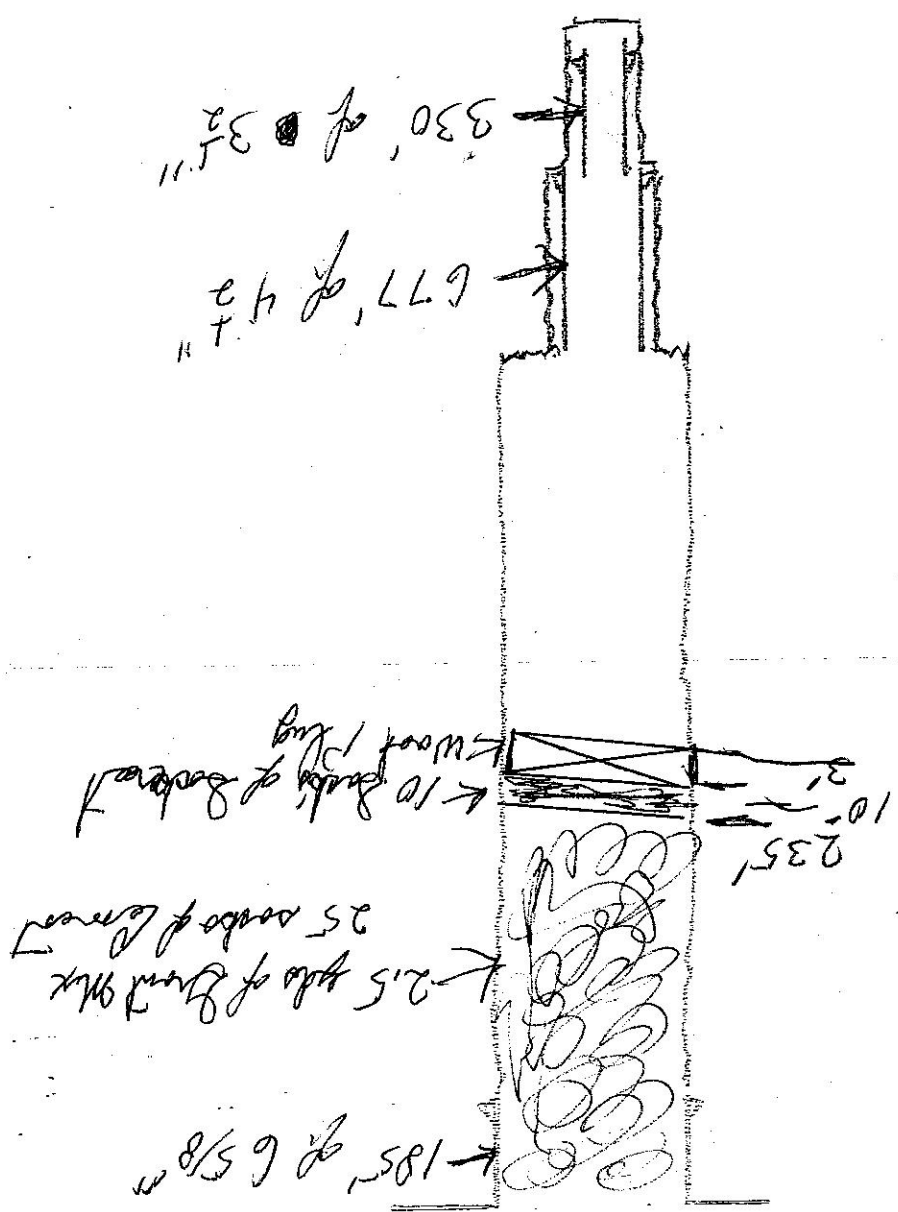 185' of 6 5/8"
2.5 yds of Grout Mix
25 sacks of Cement
235'
10'
10 sacks of
2'
Wood Plug
677' of 4 1/2"
330' of 3 1/2"